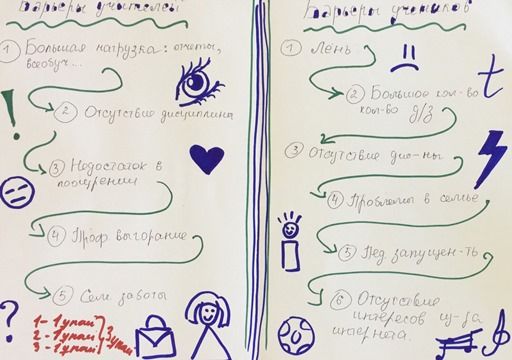 Барьеры учителей
1 Большая нагрузка: отчеты,
всеобуч...
2 Отсутствие дисциплины
3 Недостаток в
поощрении
4 Проф выгорание
5 Сем. заботы
1 - 1 упай
2 - 1 упай
3 - 1 упай
3 упай
Барьеры учеников
1 Лень
2 Большое кол-во
кол-во д/з
3 Отсутствие дис-ны
4 Проблемы в семье
5 Пед. запущен-ть
6 Отсутствие
интересов из-за
интернета.